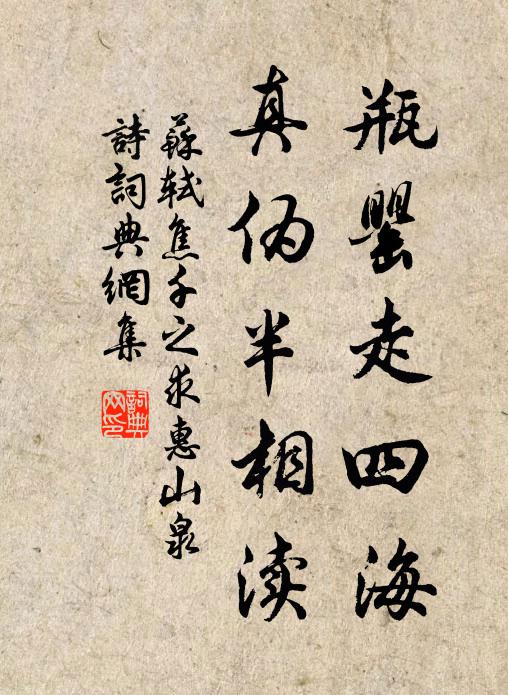 瓶罂走四海
真伪半相渎
蘇軾焦千之求惠山泉
詩詞典網集
詞典网印